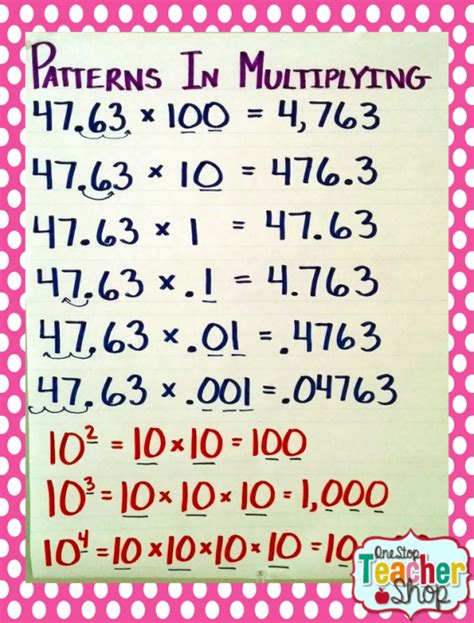 PATTERNS IN MULTIPLYING
47.63 × 100 = 4,763
47.63 × 10 = 476.3
47.63 × 1 = 47.63
47.63 × .1 = 4.763
47.63 × .01 = .4763
47.63 × .001 = .04763
10² = 10 × 10 = 100
10³ = 10 × 10 × 10 = 1,000
10⁴ = 10 × 10 × 10 × 10 = 10
One Stop
Teacher
Shop